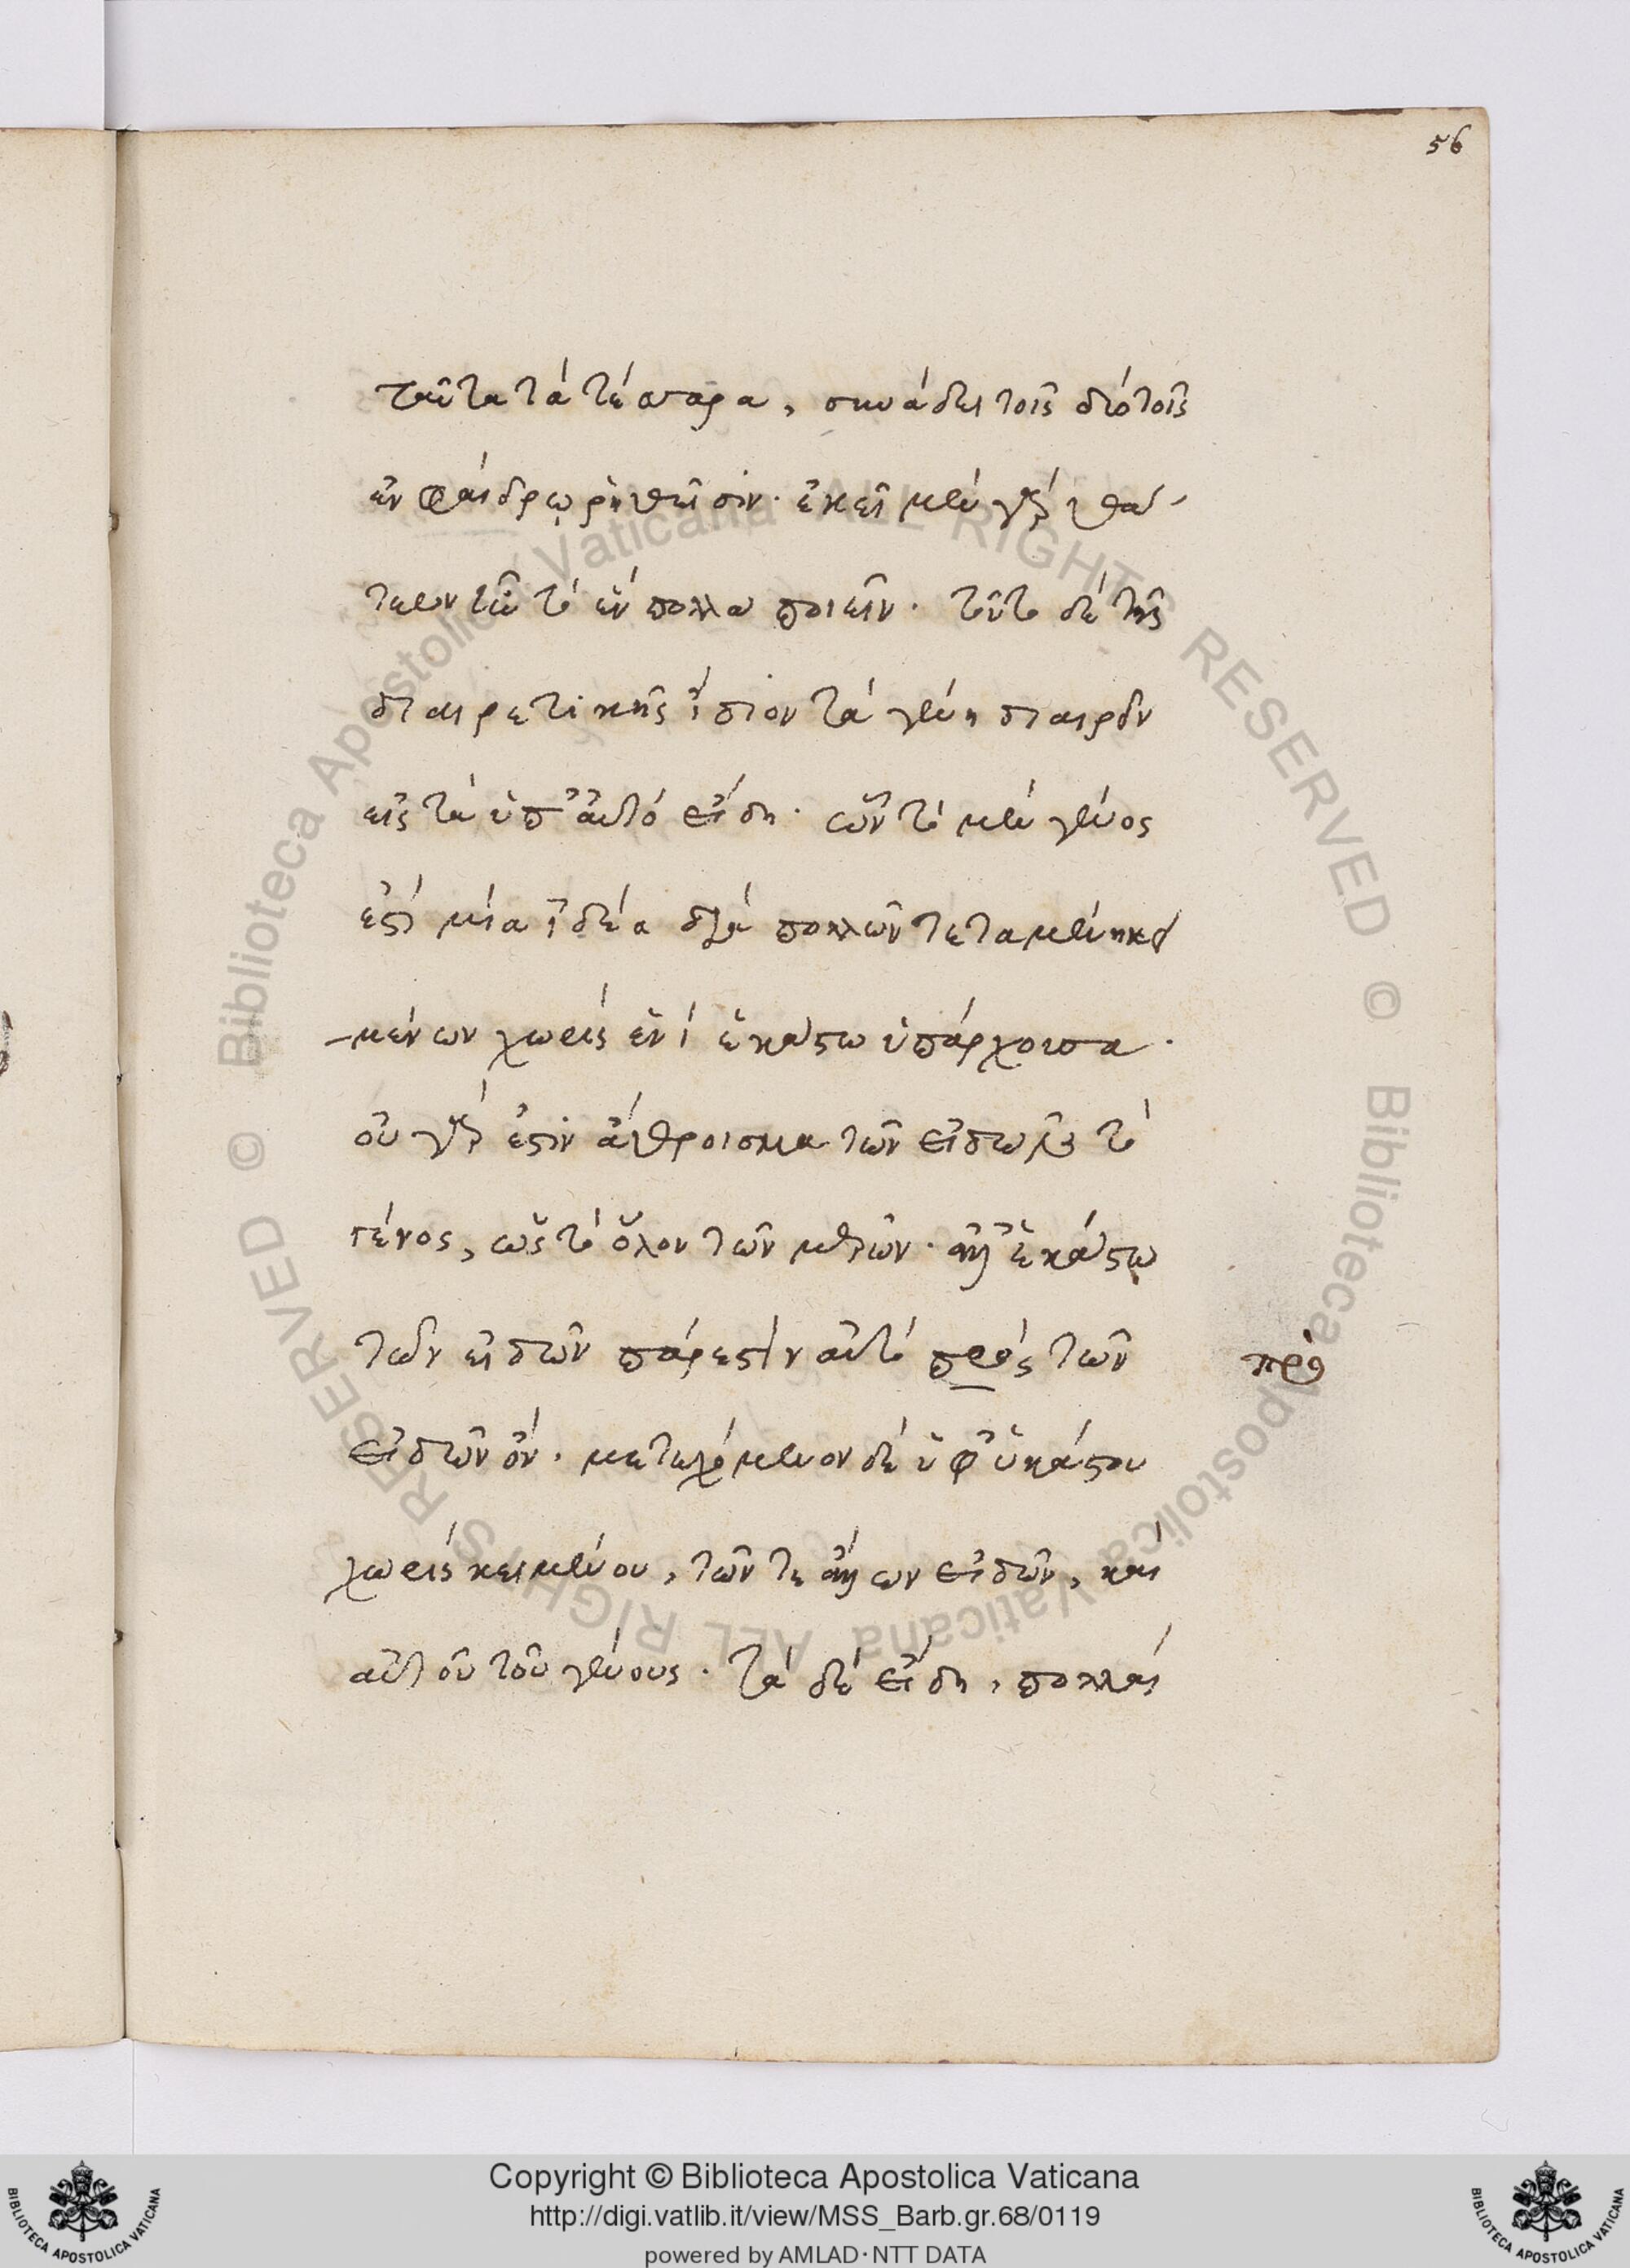 56
ταῦτα τὰ τέσσαρα, συνάδει τοῖς διότοῖς
ἐν φαίδρω ῥηθεῖσιν· ἐκεῖ μὲν γὰρ θά-
τερον τῶ τὸ ἓν πολλα ποιεῖν· τοῦτο δὲ τῆς
διαιρετικῆς ἴδιον τὰ γένη διαιροῦν
εἰς τὰ ὑπ' αὐτὸ εἴδη· ὧν τὸ μὲν γένος
ἐστὶ μία ἰδέα διὰ πολλῶν τεταμένη κει
-μένων χωρὶς ἑνὶ ἑκάστω ὑπάρχουσα·
οὐ γάρ ἐστιν ἄθροισμα τῶν εἰδῶν τὸ
γένος, ὡς τὸ ὅλον τῶν μερῶν· ἀλλ' ἑκάστω
τῶν εἰδῶν πάρεστιν αὐτὸ πρὸς τῶν
πρὸ
εἰδῶν ὄν· μετεχόμενον δὲ ὑφ' ἑκάστου
χωρὶς κειμένου, τῶν τε ἄλλων εἰδῶν, καὶ
αὐτοῦ τοῦ γένους· τὰ δὲ εἴδη, πολλαὶ
© Biblioteca Apostolica Vaticana ALL RIGHTS RESERVED © Biblioteca Apostolica Vaticana ALL RIGHTS RESERVED
Copyright © Biblioteca Apostolica Vaticana
http://digi.vatlib.it/view/MSS_Barb.gr.68/0119
powered by AMLAD·NTT DATA
BIBLIOTECA APOSTOLICA VATICANA
BIBLIOTECA APOSTOLICA VATICANA